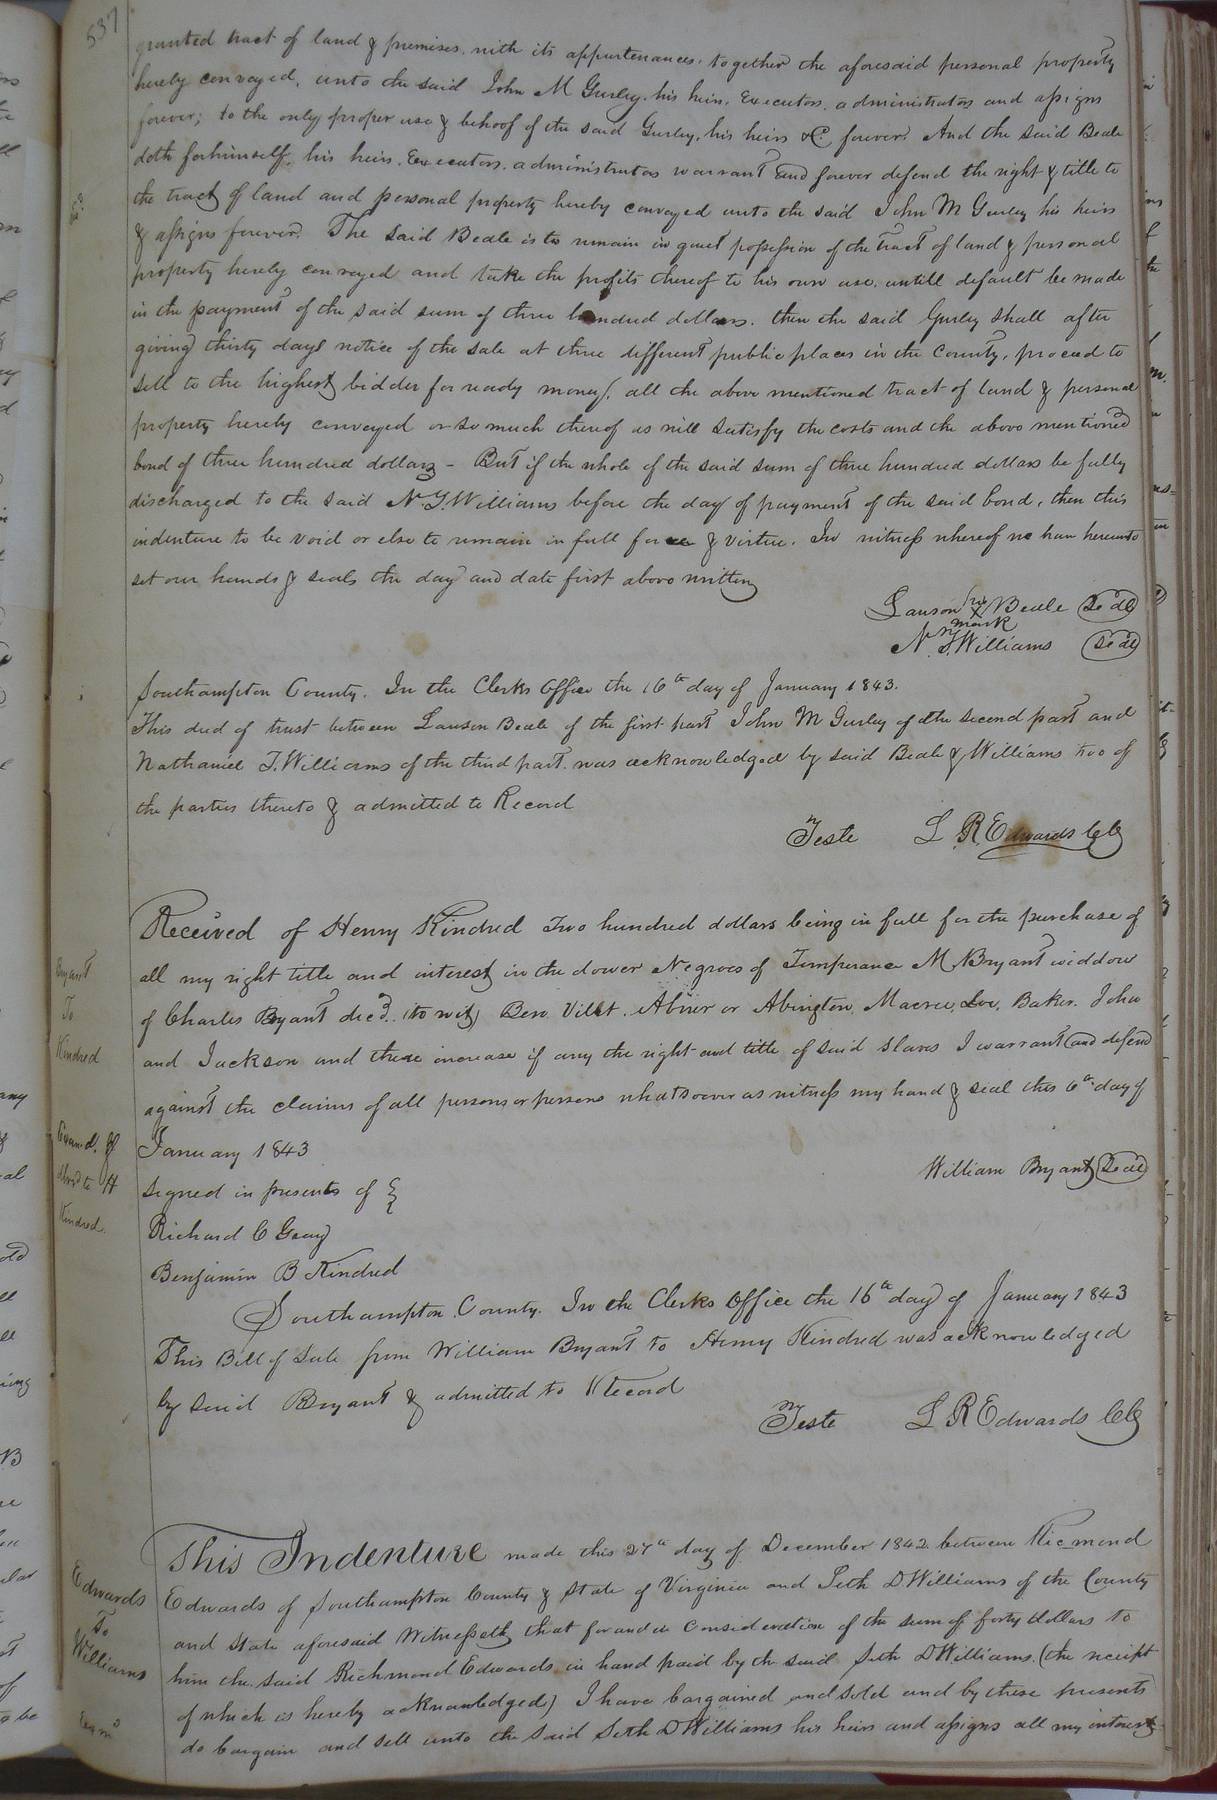 537
granted tract of land & premises, with its appurtenances, together the aforesaid personal property
hereby conveyed, unto the said John M Gurley, his heirs, Executors, administrators and assigns
forever; to the only proper use & behoof of the said Gurley, his heirs &C. forever. And the said Beale
doth for himself, his heirs, Executors, administrators warrant and forever defend the right & title to
the tract of land and personal property hereby conveyed unto the said John M Gurley his heirs
& assigns forever. The said Beale is to remain in quiet possession of the tract of land & personal
property hereby conveyed and take the profits thereof to his own use, untill default be made
in the payment of the said sum of three hundred dollars. then the said Gurley shall after
giving thirty days notice of the sale at three different public places in the County, proceed to
sell to the highest bidder for ready money, all the above mentioned tract of land & personal
property hereby conveyed or so much thereof as will satisfy the costs and the above mentioned
bond of three hundred dollars - But if the whole of the said sum of three hundred dollars be fully
discharged to the said N. T. Williams before the day of payment of the said bond, then this
indenture to be void or else to remain in full force & virtue. In witness whereof we have hereunto
set our hands & seals the day and date first above written
Lawson his X mark Beale Seal
N. T. Williams Seal
Southampton County. In the Clerks Office the 16th day of January 1843.
This deed of trust between Lawson Beale of the first part John M Gurley of the second part and
Nathaniel T. Williams of the third part was acknowledged by said Beale & Williams two of
the parties thereto & admitted to Record
Teste L R Edwards CC
Bryant
To
Kindred
Received of Henry Kindred Two hundred dollars being in full for the purchase of
all my right title and interest in the dower Negroes of Temperance M Bryant widdow
of Charles Bryant decd. (to wit) Ben, Abner or Abington, Baker. John
and Jackson and there increase if any the right and title of said slaves I warrant and defend
against the claims of all persons or persons whatsoever as witness my hand & seal this 6th day of
January 1843
William Bryant Seal
Examd. &
to H
Kindred
Signed in presents of
Richard C Gray
Benjamin B Kindred
Southampton County. In the Clerks Office the 16th day of January 1843
This Bill of Sale from William Bryant to Henry Kindred was acknowledged
by said Bryant & admitted to Record
Teste L R Edwards CC
Edwards
To
Williams
This Indenture made this 27th day of December 1842 between Ricmond
Edwards of Southampton County & State of Virginia and Seth D Williams of the County
and State aforesaid Witnesseth that for and in consideration of the sum of forty dollars to
him the said Richmond Edwards in hand paid by the said Seth D Williams (the receipt
of which is hereby acknowledged) I have bargained and sold and by these presents
do bargain and sell unto the said Seth D Williams his heirs and assigns all my interest